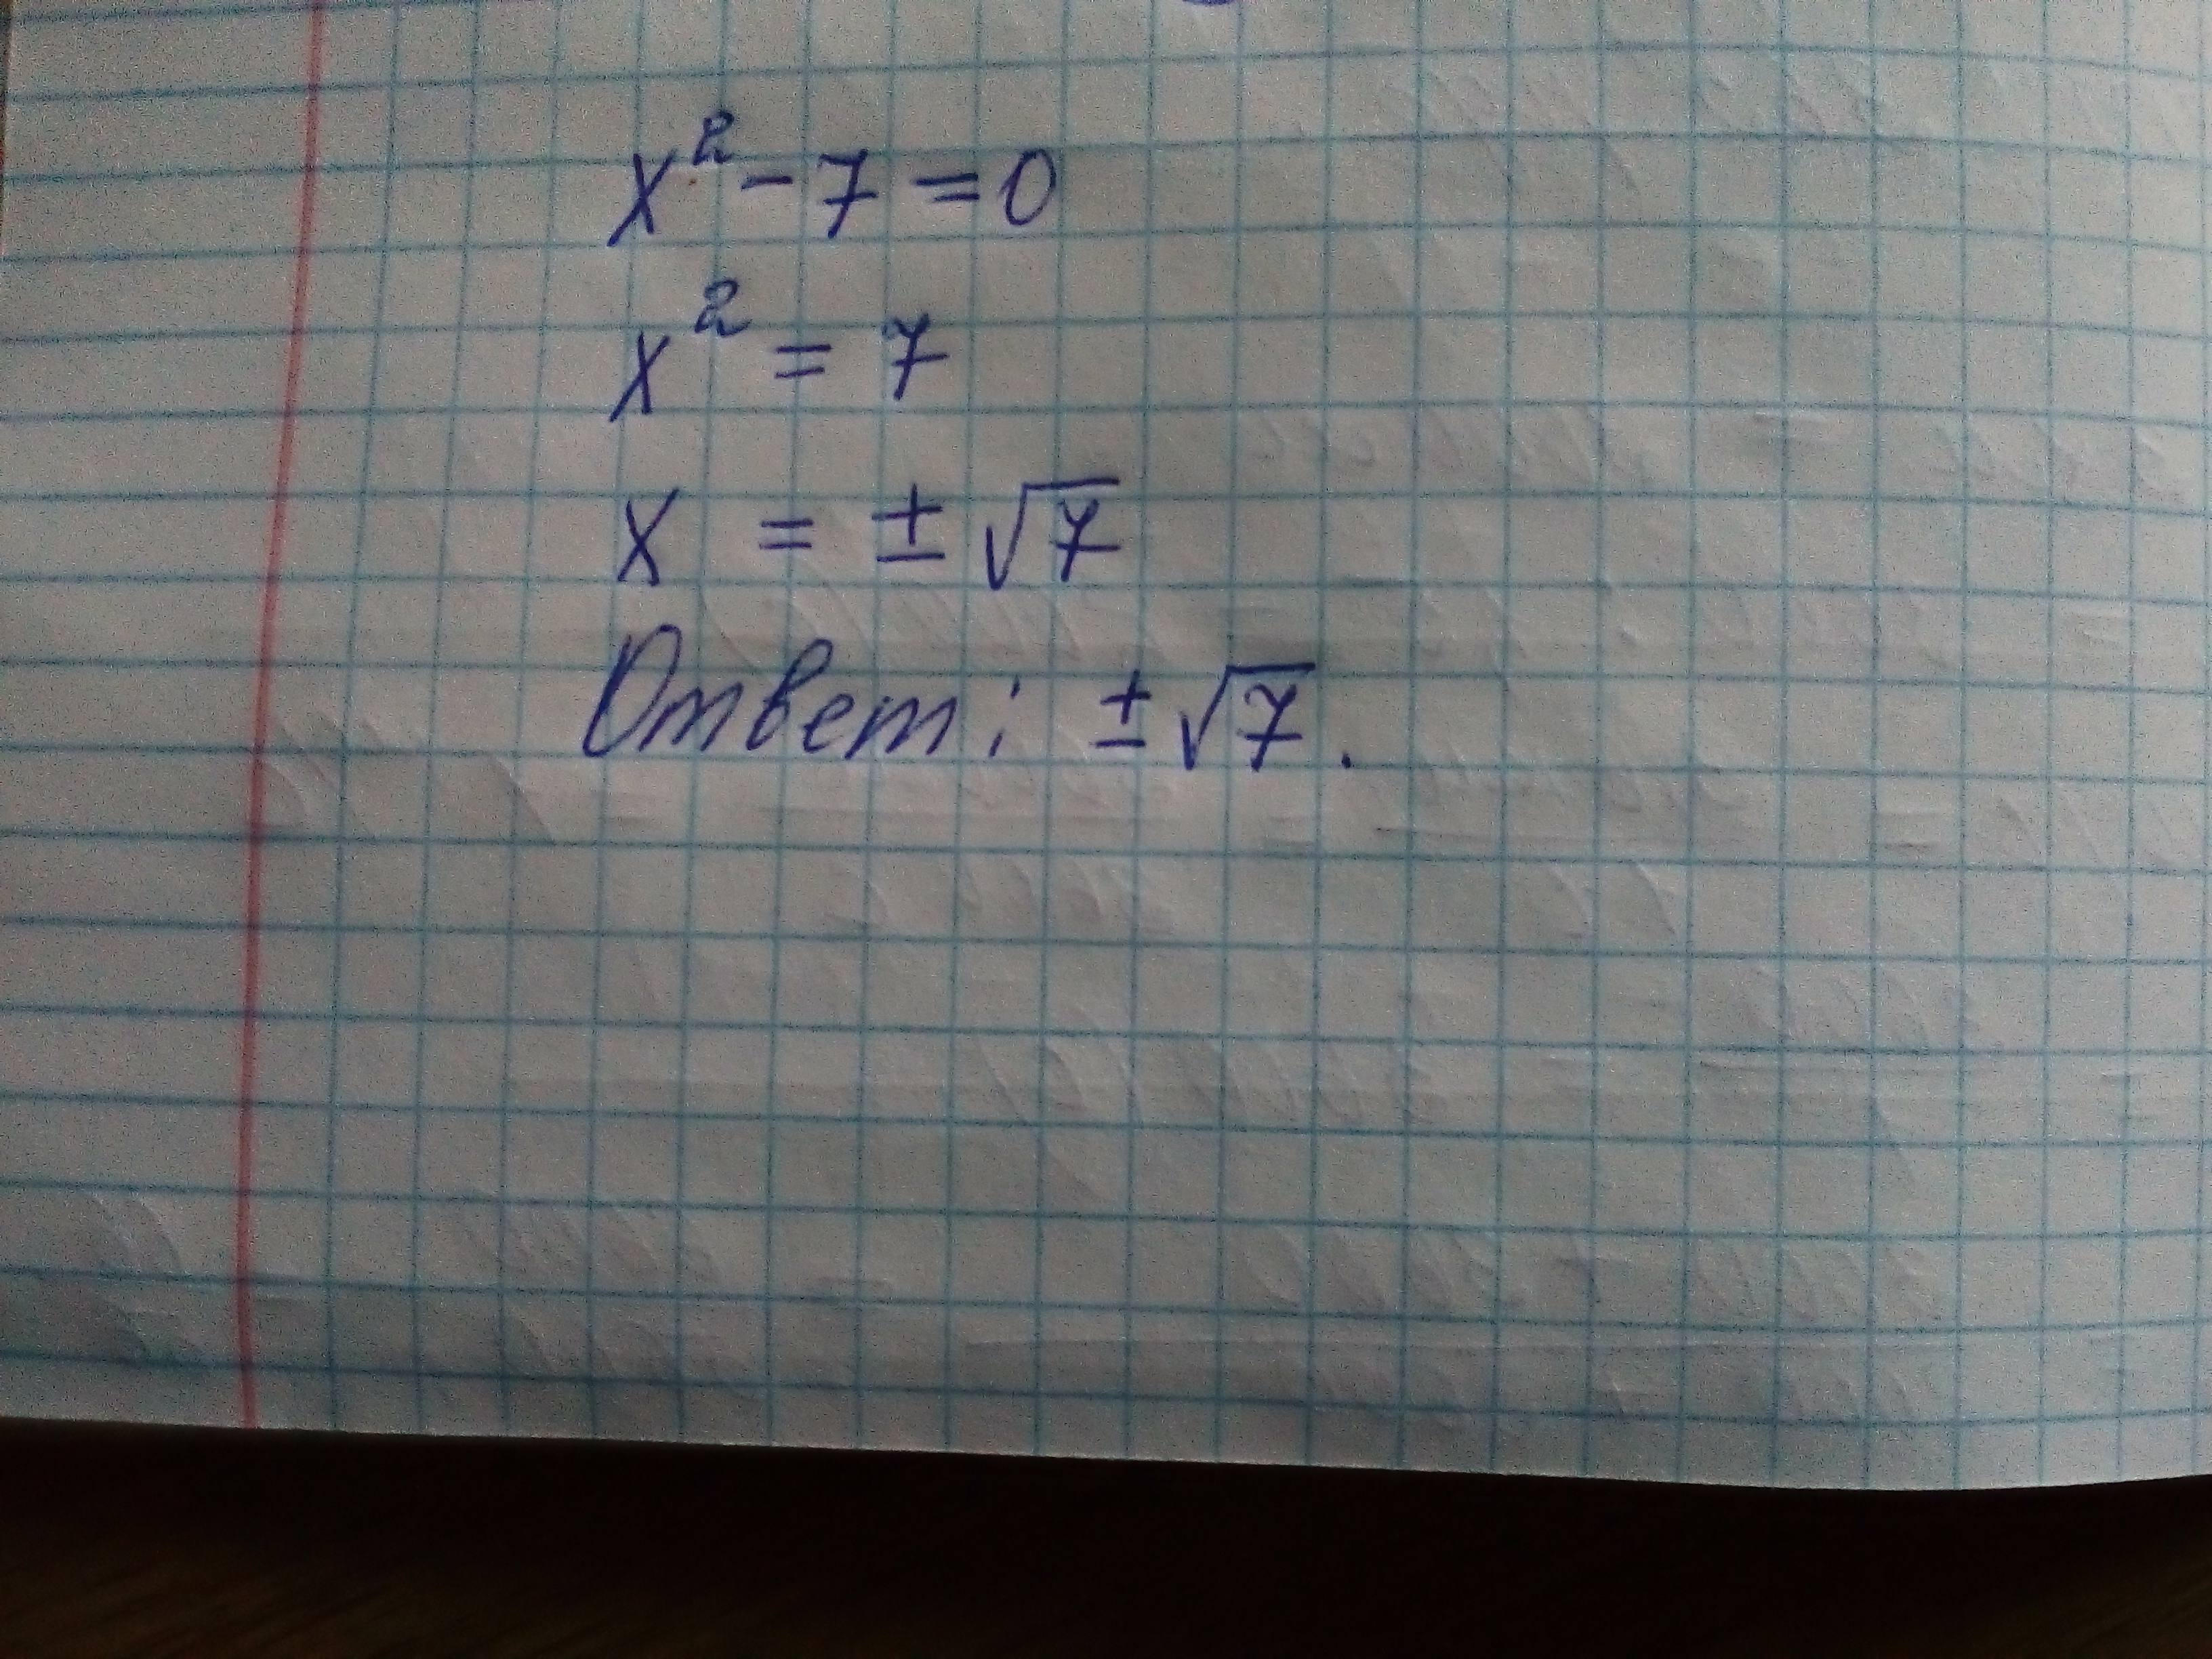 x² - 7 = 0
x² = 7
x = ± √7
Ответ: ± √7.